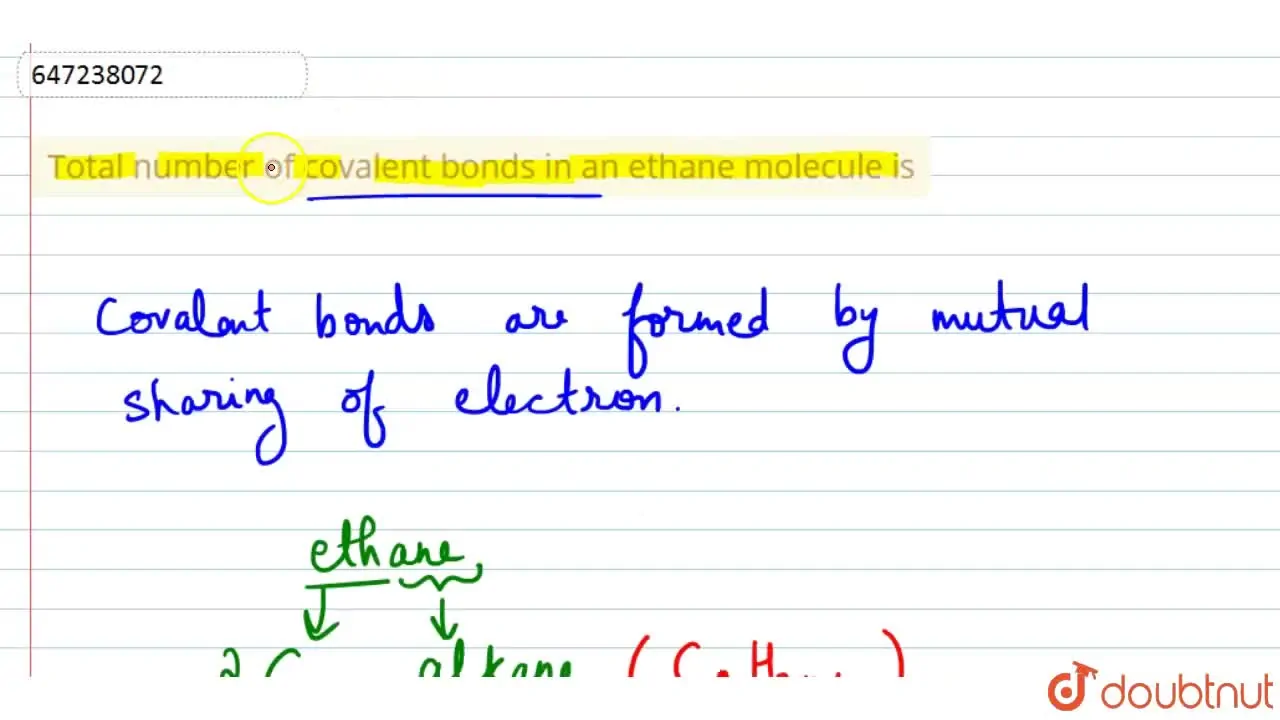 647238072
Total number of covalent bonds in an ethane molecule is
Covalent bonds are formed by mutual
sharing of electron.
ethane,
2C alkane
doubtnut